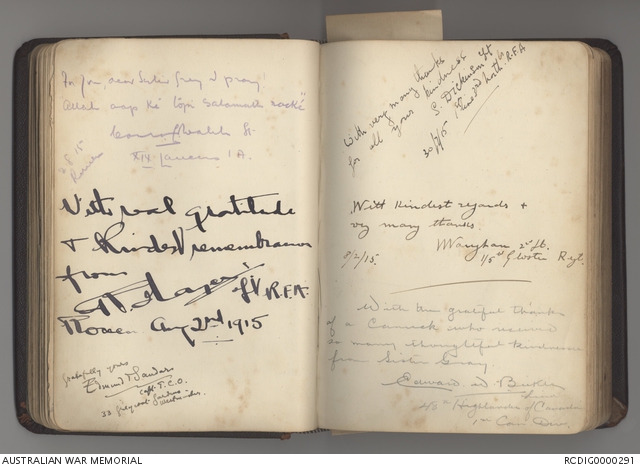 For you, dear Sister Grey I pray!
Allah aap ké topi Salamath racké
Lt.
XIX Lancers I.A.
2.8.15
Rouen
With real gratitude
& Kindest remembrances
from
Lt R.F.A.
Rouen Aug 2nd 1915
Gratefully yours
Edmund
Capt. T.C.O.
33 Greycoat Gardens
Westminster
With very many thanks
for all your kindness
S. Dickinson Lt
R.F.A
30/7/15
With kindest regards &
very many thanks.
M Vaughan 2nd Lt.
8/2/15.
1/5th Gloster Regt.
With the grateful thanks
of a Canuck who received
so many thoughtful kindnesses
from Sister Gray.
Edward
48th Highlanders of Canada
1st Can. Div.
AUSTRALIAN WAR MEMORIAL
RCDIG0000291